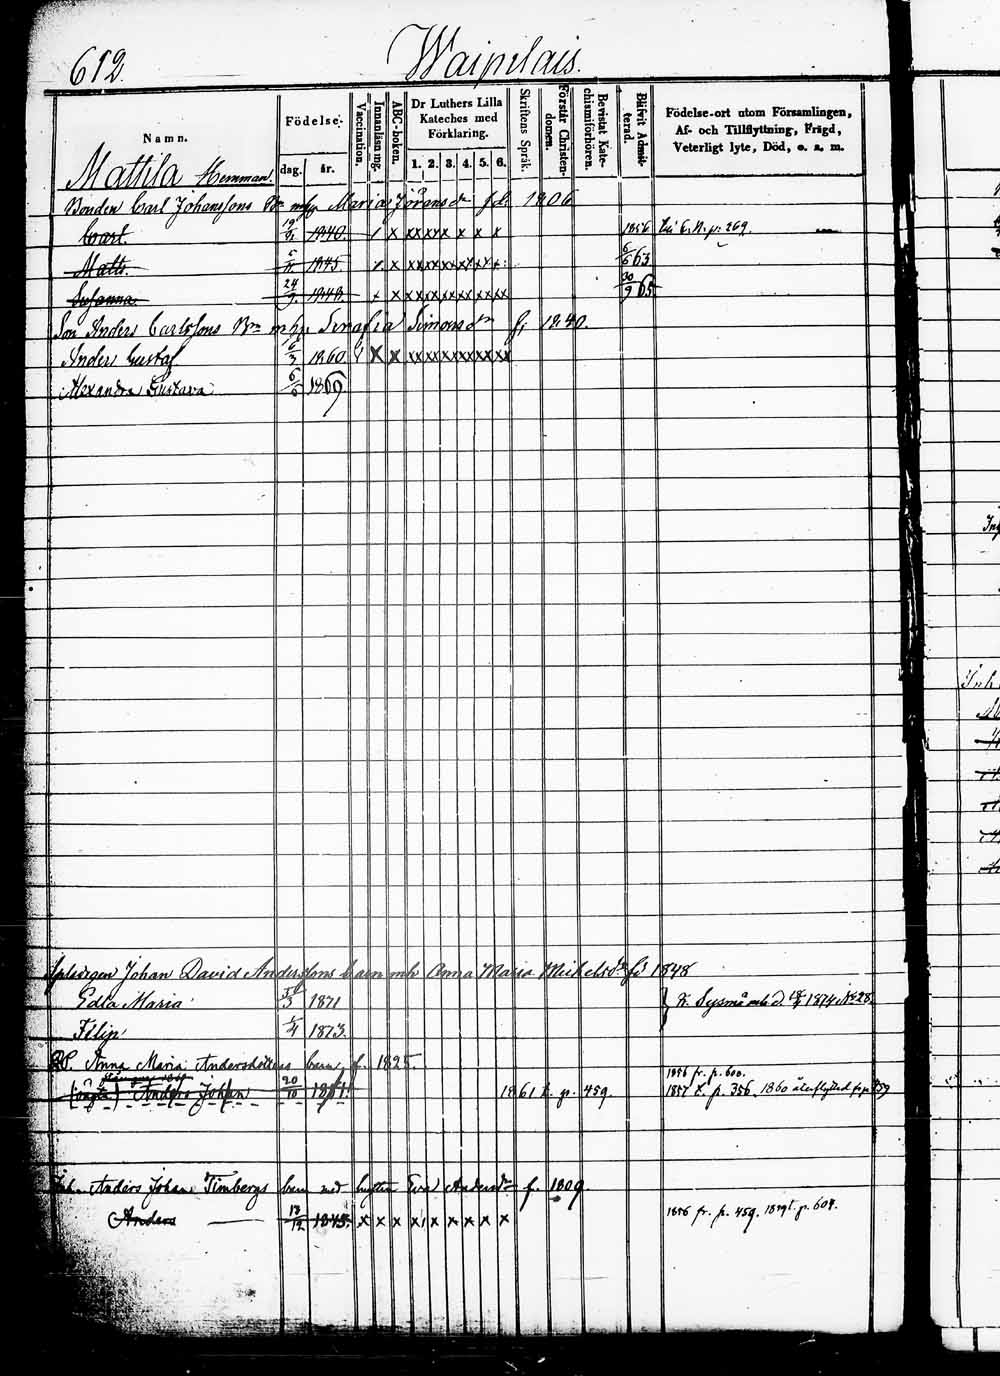 612.
Waipilais.
Namn.
Födelse-
dag.
år.
Vaccination.
Innanläsning.
ABC-boken.
Dr Luthers Lilla
Kateches med
Förklaring.
1. 2. 3. 4. 5. 6.
Skriftens Språk.
Förstår Christendomen.
Bevistat Katechismiförhören.
Blifvit Admitterad.
Födelse-ort utom Församlingen,
Af- och Tillflyttning, Frägd,
Veterligt lyte, Död, o. s. m.
Mattila Hemman.
Bonden Carl Johanssons Bn mhu Maria Göransdr fd. 1806
Carl. 1840. / x xx xx x x x x 1856 269
Matts. 1845. / x xx xx xx xx xx x 6/6 63
Susanna 24/9 1848. + x xx xx xx xx xx xx 30/9 65
Son Anders Carlssons Bn mhu Serafia Simonsdr f. 1840.
Anders Gustaf 1860 x x xx xx xx xx xx xx
Alexandra Gustava 1869
Johan David Anderssons barn mh Anna Maria Michelsdr fd 1848
Edla Maria 1871
t. Sysmä 1874 No 28.
Filip 1873.
Anna Maria Andersdotters barn, f. 1825.
1856 fr. p. 600.
(oägta) Anders Johan 20/10 1861. 1861 t. p. 459. 1857 t. p. 356. 1860 återflyttad fr. p. 459
Anders Johan Timbergs barn med hustrun Eva Andersdr f. 1809.
Anders 18/12 1845. x x x x x x x x x 1856 fr. p. 459.